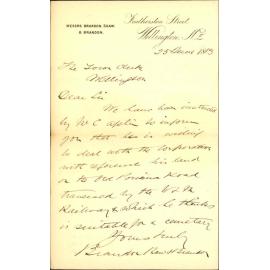 MESSRS BRANDON SHAW
& BRANDON.
Featherston Street
Wellington, N.Z.
25 June 1889
The Town Clerk
Wellington
Dear Sir
We have been instructed
by W C to inform
you that he is willing
to deal with the Corporation
with reference his land
on the Old Porirua Road
traversed by the W & M
Railway & which he thinks
is suitable for a cemetery
Yours truly
Brandon Shaw & Brandon